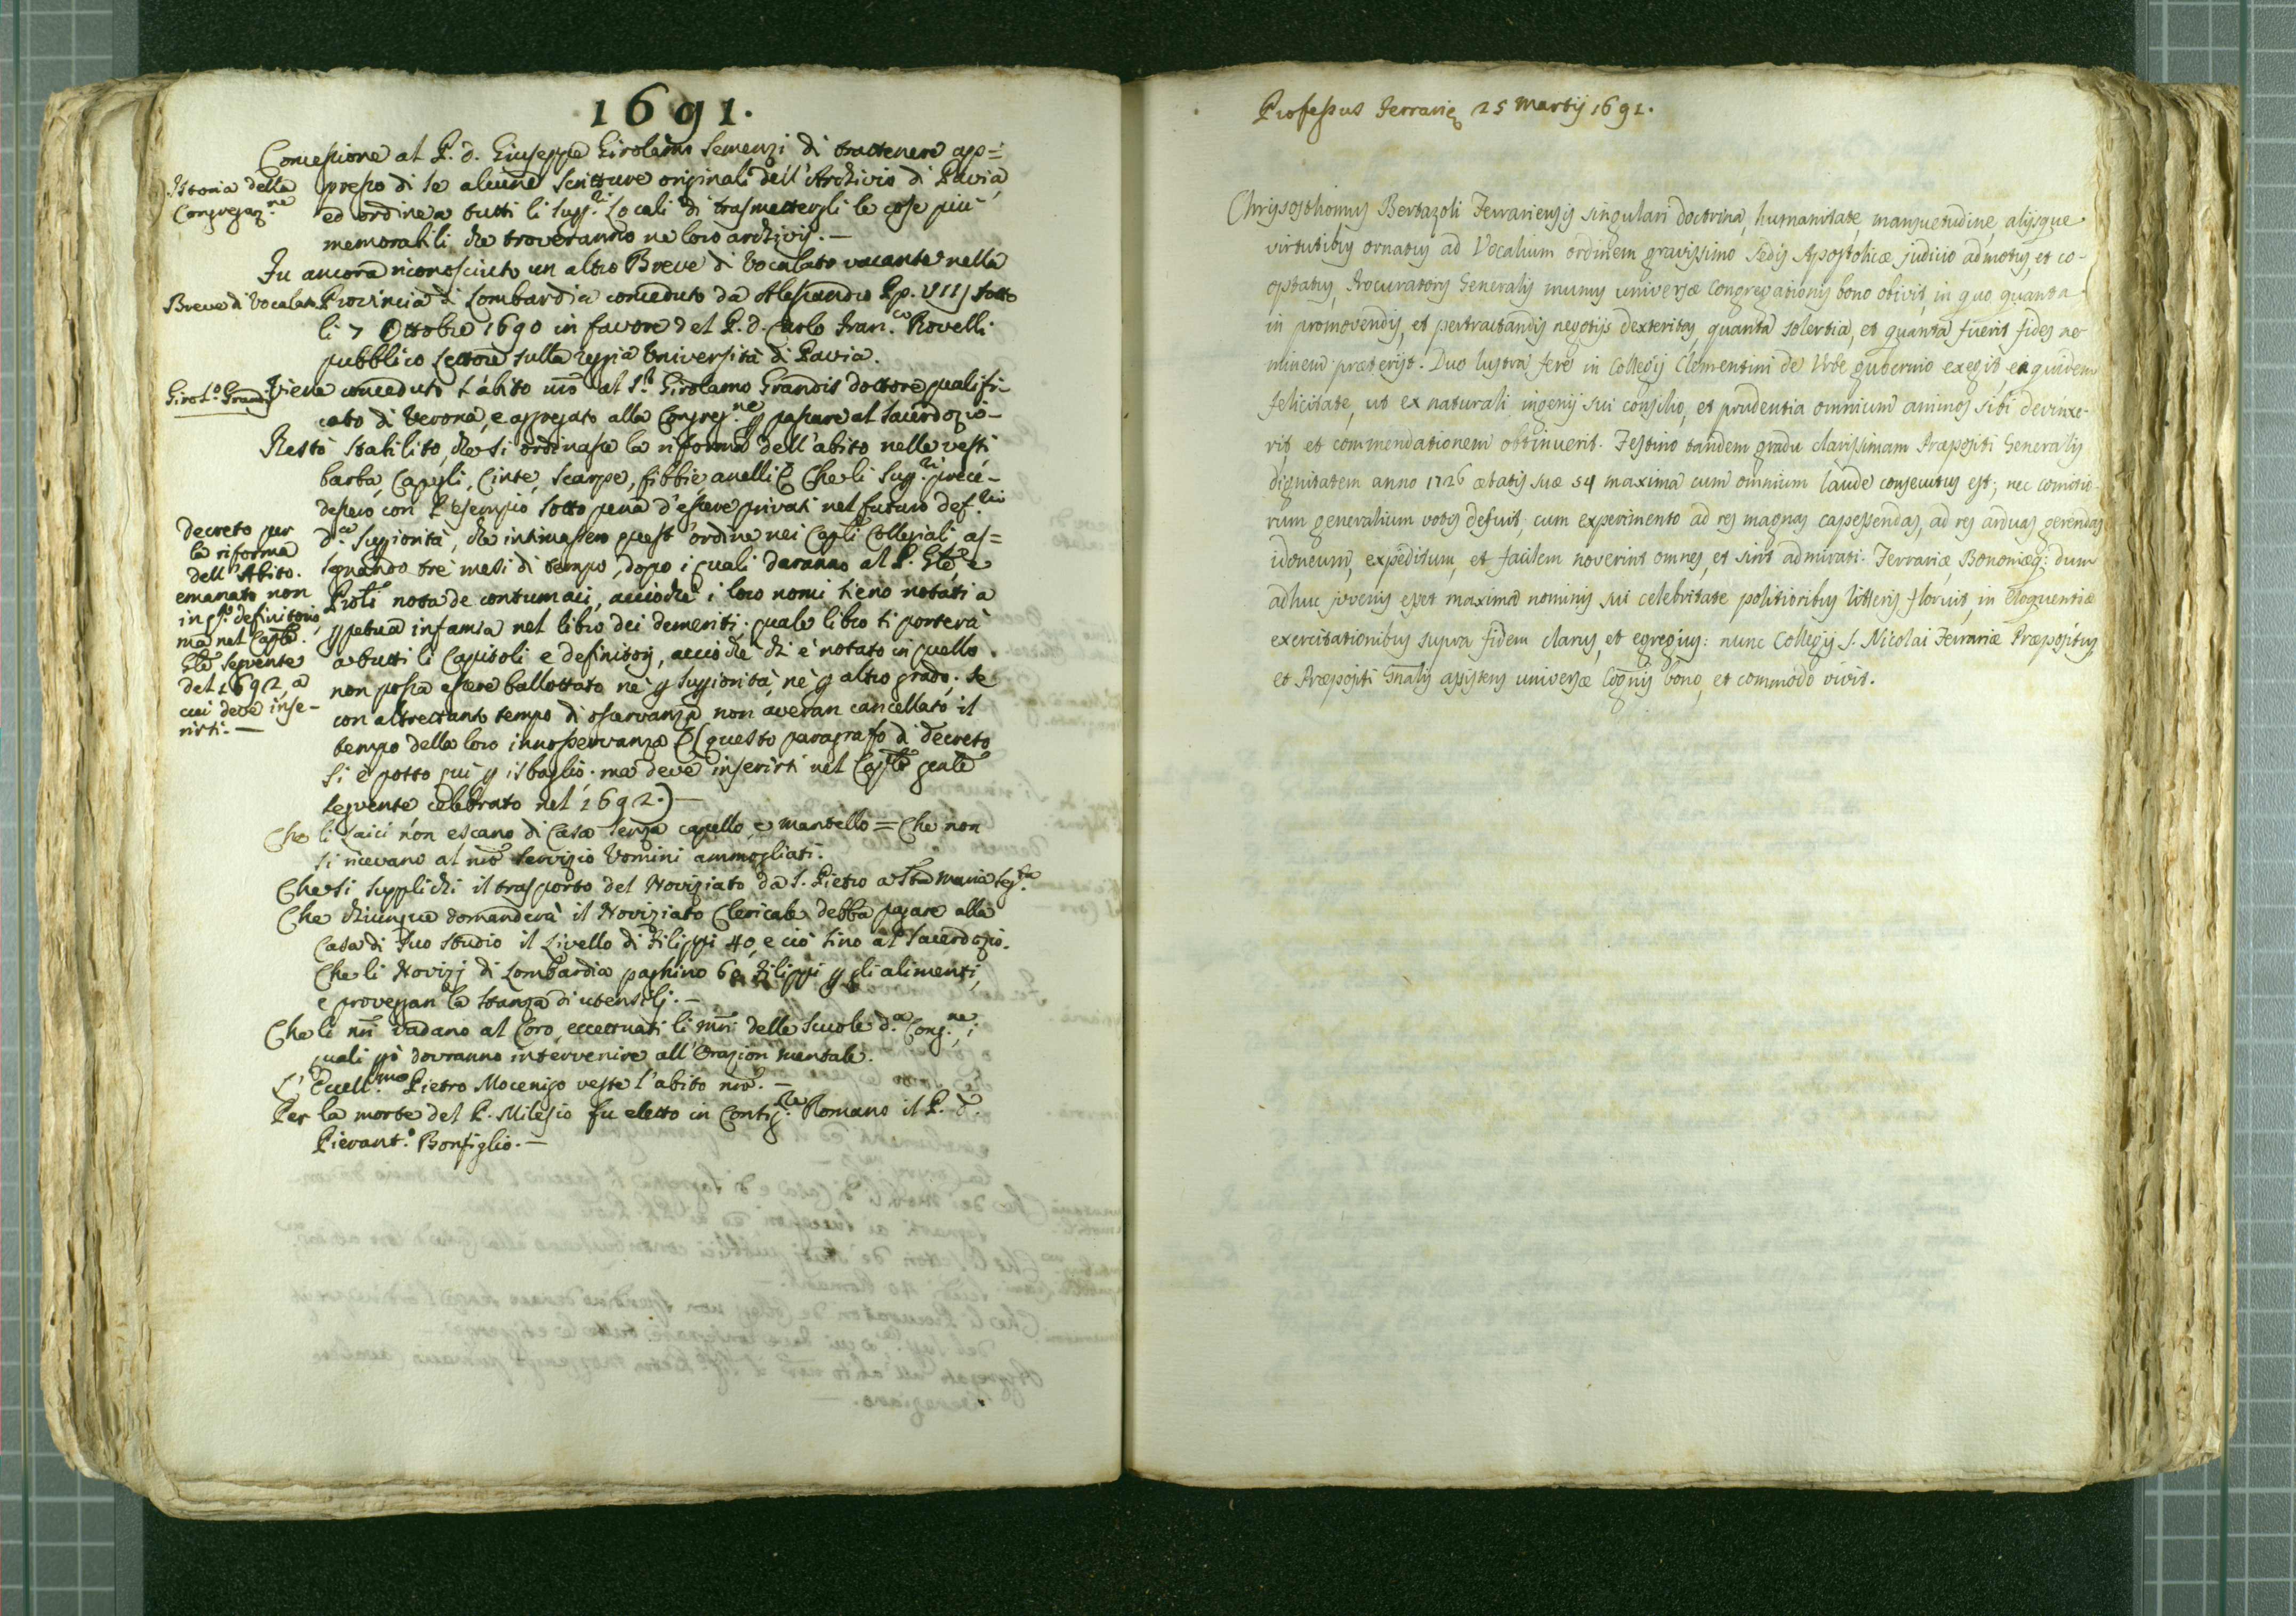 1691.
Concessione al P. d. Giuseppe Girolamo Semenzi di trattenere ap=
Istoria della
Congregaz.ne
presso di se alcune scritture originali dell'Archivio di Pavia,
ed ordine a tutti li Supp.ri Locali di trasmettergli le cose più
memorabili, che troveranno ne loro archivij. —
Fu ancora riconosciuto un altro Breve di Vocalato vacante nella
Breve di Vocalato
Provincia di Lombardia conceduto da Alessandro Pp. VIII sotto
li 7 Ottobre 1690 in favore del P. d. Carlo Fran.co Rovelli
pubblico Lettore sulla regia Università di Pavia.
Girol.o Grandis
Viene conceduto l'abito nrõ al S.r Girolamo Grandis dottore qualifi-
cato di Verona, e aggregato alla Congreg.ne p passare al Sacerdozio —
Restò stabilito, che si ordinasse la riforma dell'abito nelle vesti
barba, Capegli, Cinte, scarpe, fibbie anelli Che li Supp.ri prece-
dessero con l'esempio sotto pena d'essere privati nel futuro def.rio
decreto per
la riforma
dell'Abito.
emanato non
in qsto definitorio,
ma nel Caplõ
Glẽ seguente
del 1692, a
cui deve inse-
rirsi. —
d.a Suppiorità, che intimassero quest'ordine nei Capli Collegiali, as=
segnando tre mesi di tempo, dopo i quali daranno al P. Glẽ, e
nota de contumaci, acciochè i loro nomi sieno notati a
ppetua infamia nel libro dei demeriti; quale libro si porterà
a tutti li Capitoli e definitorj, acciochè chi è notato in quello
non possa essere ballottato nè p Suppiorità, nè p altro grado, se
con altrettanto tempo di osservanza non averan cancellato il
tempo della loro innosservanza (questo paragrafo di decreto
si è posto qui p isbaglio. ma deve inserirsi nel Caplõ genlẽ
seguente celebrato nel 1692.) —
Che li Laici non escano di Casa senza capello, e mantello = Che non
si ricevano al nrõ servizio Uomini ammogliati.
Che si supplichi il trasporto del Noviziato da S. Pietro a Stã Maria Seg.ta
Che chiunque domanderà il Noviziato Clericale debba pagare alla
Casa di suo studio il Livello di Filippi 40, e ciò sino al Sacerdozio.
Che li Novizj di Lombardia paghino 60 Filippi p gli alimenti,
e proveggan la stanza di utensilj. —
Che li nrĩ vadano al Coro, eccettuati li mrĩ delle scuole d.a Cong.ne, i
quali pò dovranno intervenire all'Orazion mentale.
L'Eccell.mo Pietro Mocenigo veste l'abito nrõ. —
Per la morte del P. Milesio fu eletto in Romano il P. d.
Pierant.o Bonfiglio. —
Professus Ferrarię 25 Martij 1691.
Chrysosthomus Bertazoli Ferrariensis singulari doctrina, humanitate, mansuetudine, alijsque
virtutibus ornatus ad Vocalium ordinem gravissimo Sedis Apostolicæ judicio admotus, et co-
optatus, Procuratoris Generalis munus universæ Congregationis bono obivit, in quo quanta
in promovendis, et pertractandis negotijs dexteritas, quanta solertia, et quanta fuerit fides ne-
minem præterijt. Duo lustra ferè in Collegij Clementini de Urbe gubernio exegit, ea quidem
felicitate, ut ex naturali ingenij sui consilio, et prudentia omnium animos sibi devinxe-
rit et commendationem obtinuerit. Festino tandem gradu clarissimam Præpositi Generalis
dignitatem anno 1726 ætatis suæ 54 maxima cum omnium laude consecutus est; nec comitio-
rum generalium votis defuit, cum experimento ad res magnas capessendas, ad res arduas gerendas
idoneum, expeditum, et facilem noverint omnes, et sint admirati. Ferrariæ, Bononiæq; dum
adhuc juvenis esset maxima nominis sui celebritate politioribus litteris floruit, in eloquentiæ
exercitationibus supra fidem clarus, et egregius: nunc Collegij S. Nicolai Ferrariæ Præpositus,
et Præpositi Gnalis assistens universæ Cognis bono, et commodo vivit.